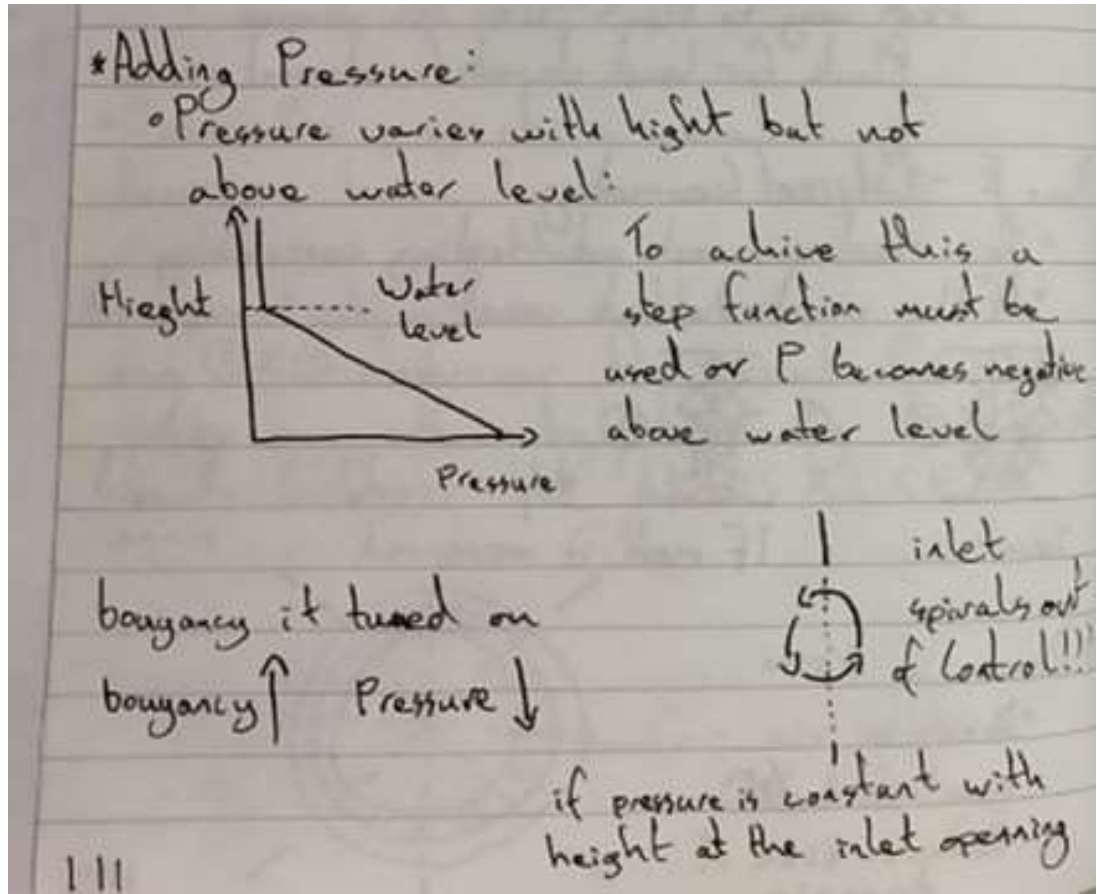 *Adding Pressure:
∘Pressure varies with hight but not
above water level:
Hieght
Water
level
Pressure
To achive this a
step function must be
used or P becomes negative
above water level
bouyancy it tuned on
bouyancy ↑ Pressure ↓
inlet
spirals out
of Control!!!
if pressure is constant with
height at the inlet openning